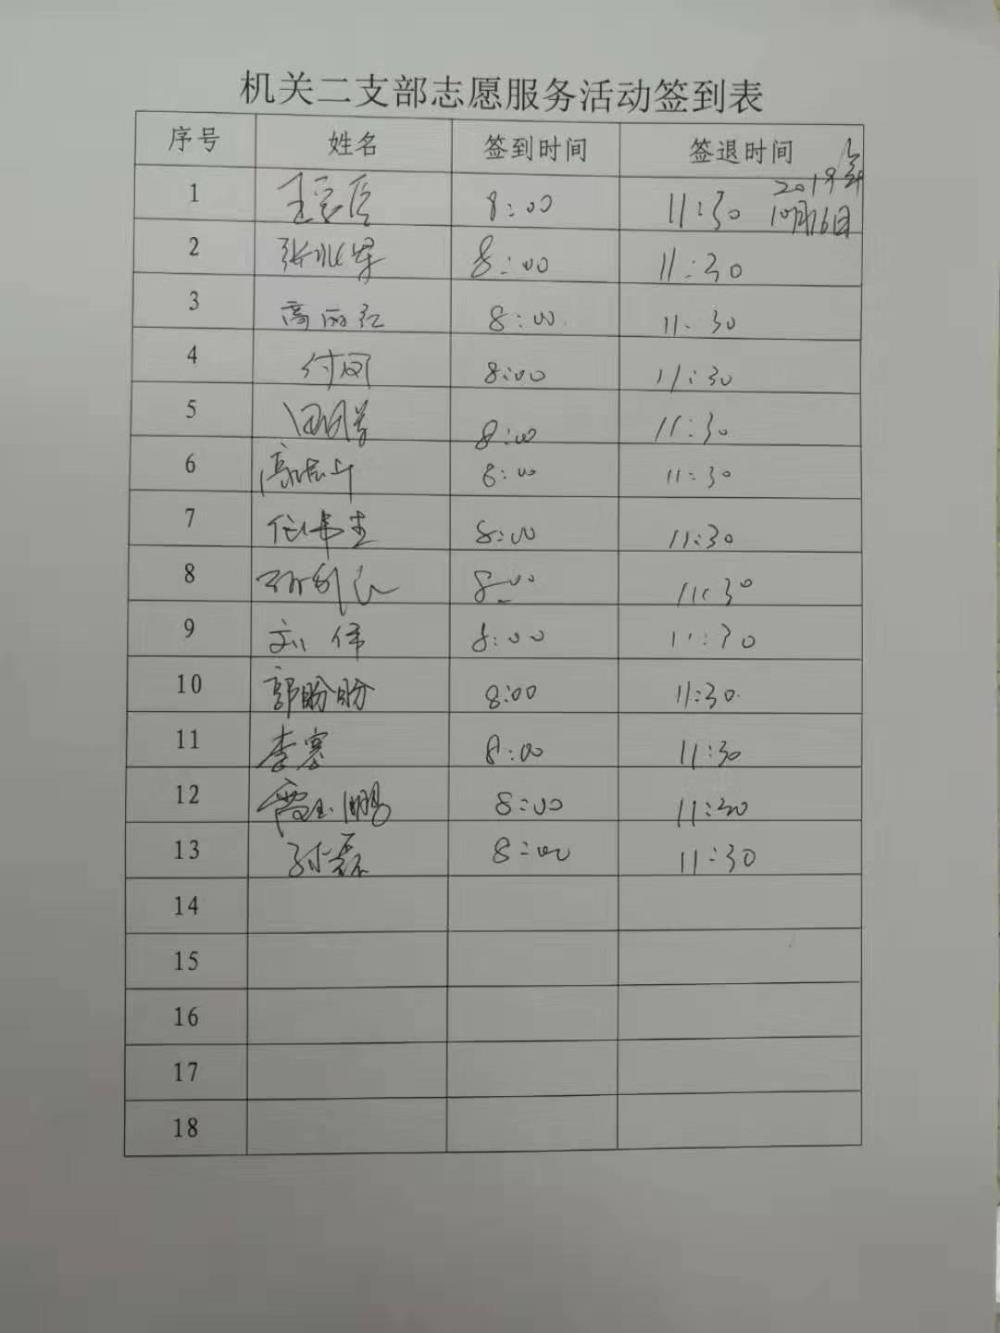 机关二支部志愿服务活动签到表
序号 姓名 签到时间 签退时间
2019年
1 8:00 11:30 10月16日
2 8:00 11:30
3 高丽红 8:00 11:30
4 付园 8:00 11:30
5 8:00 11:30
6 8:00 11:30
7 任伟圭 8:00 11:30
8 8:00 11:30
9 刘伟 8:00 11:30
10 郭盼盼 8:00 11:30
11 李寒 8:00 11:30
12 8:00 11:30
13 孙磊 8:00 11:30
14
15
16
17
18